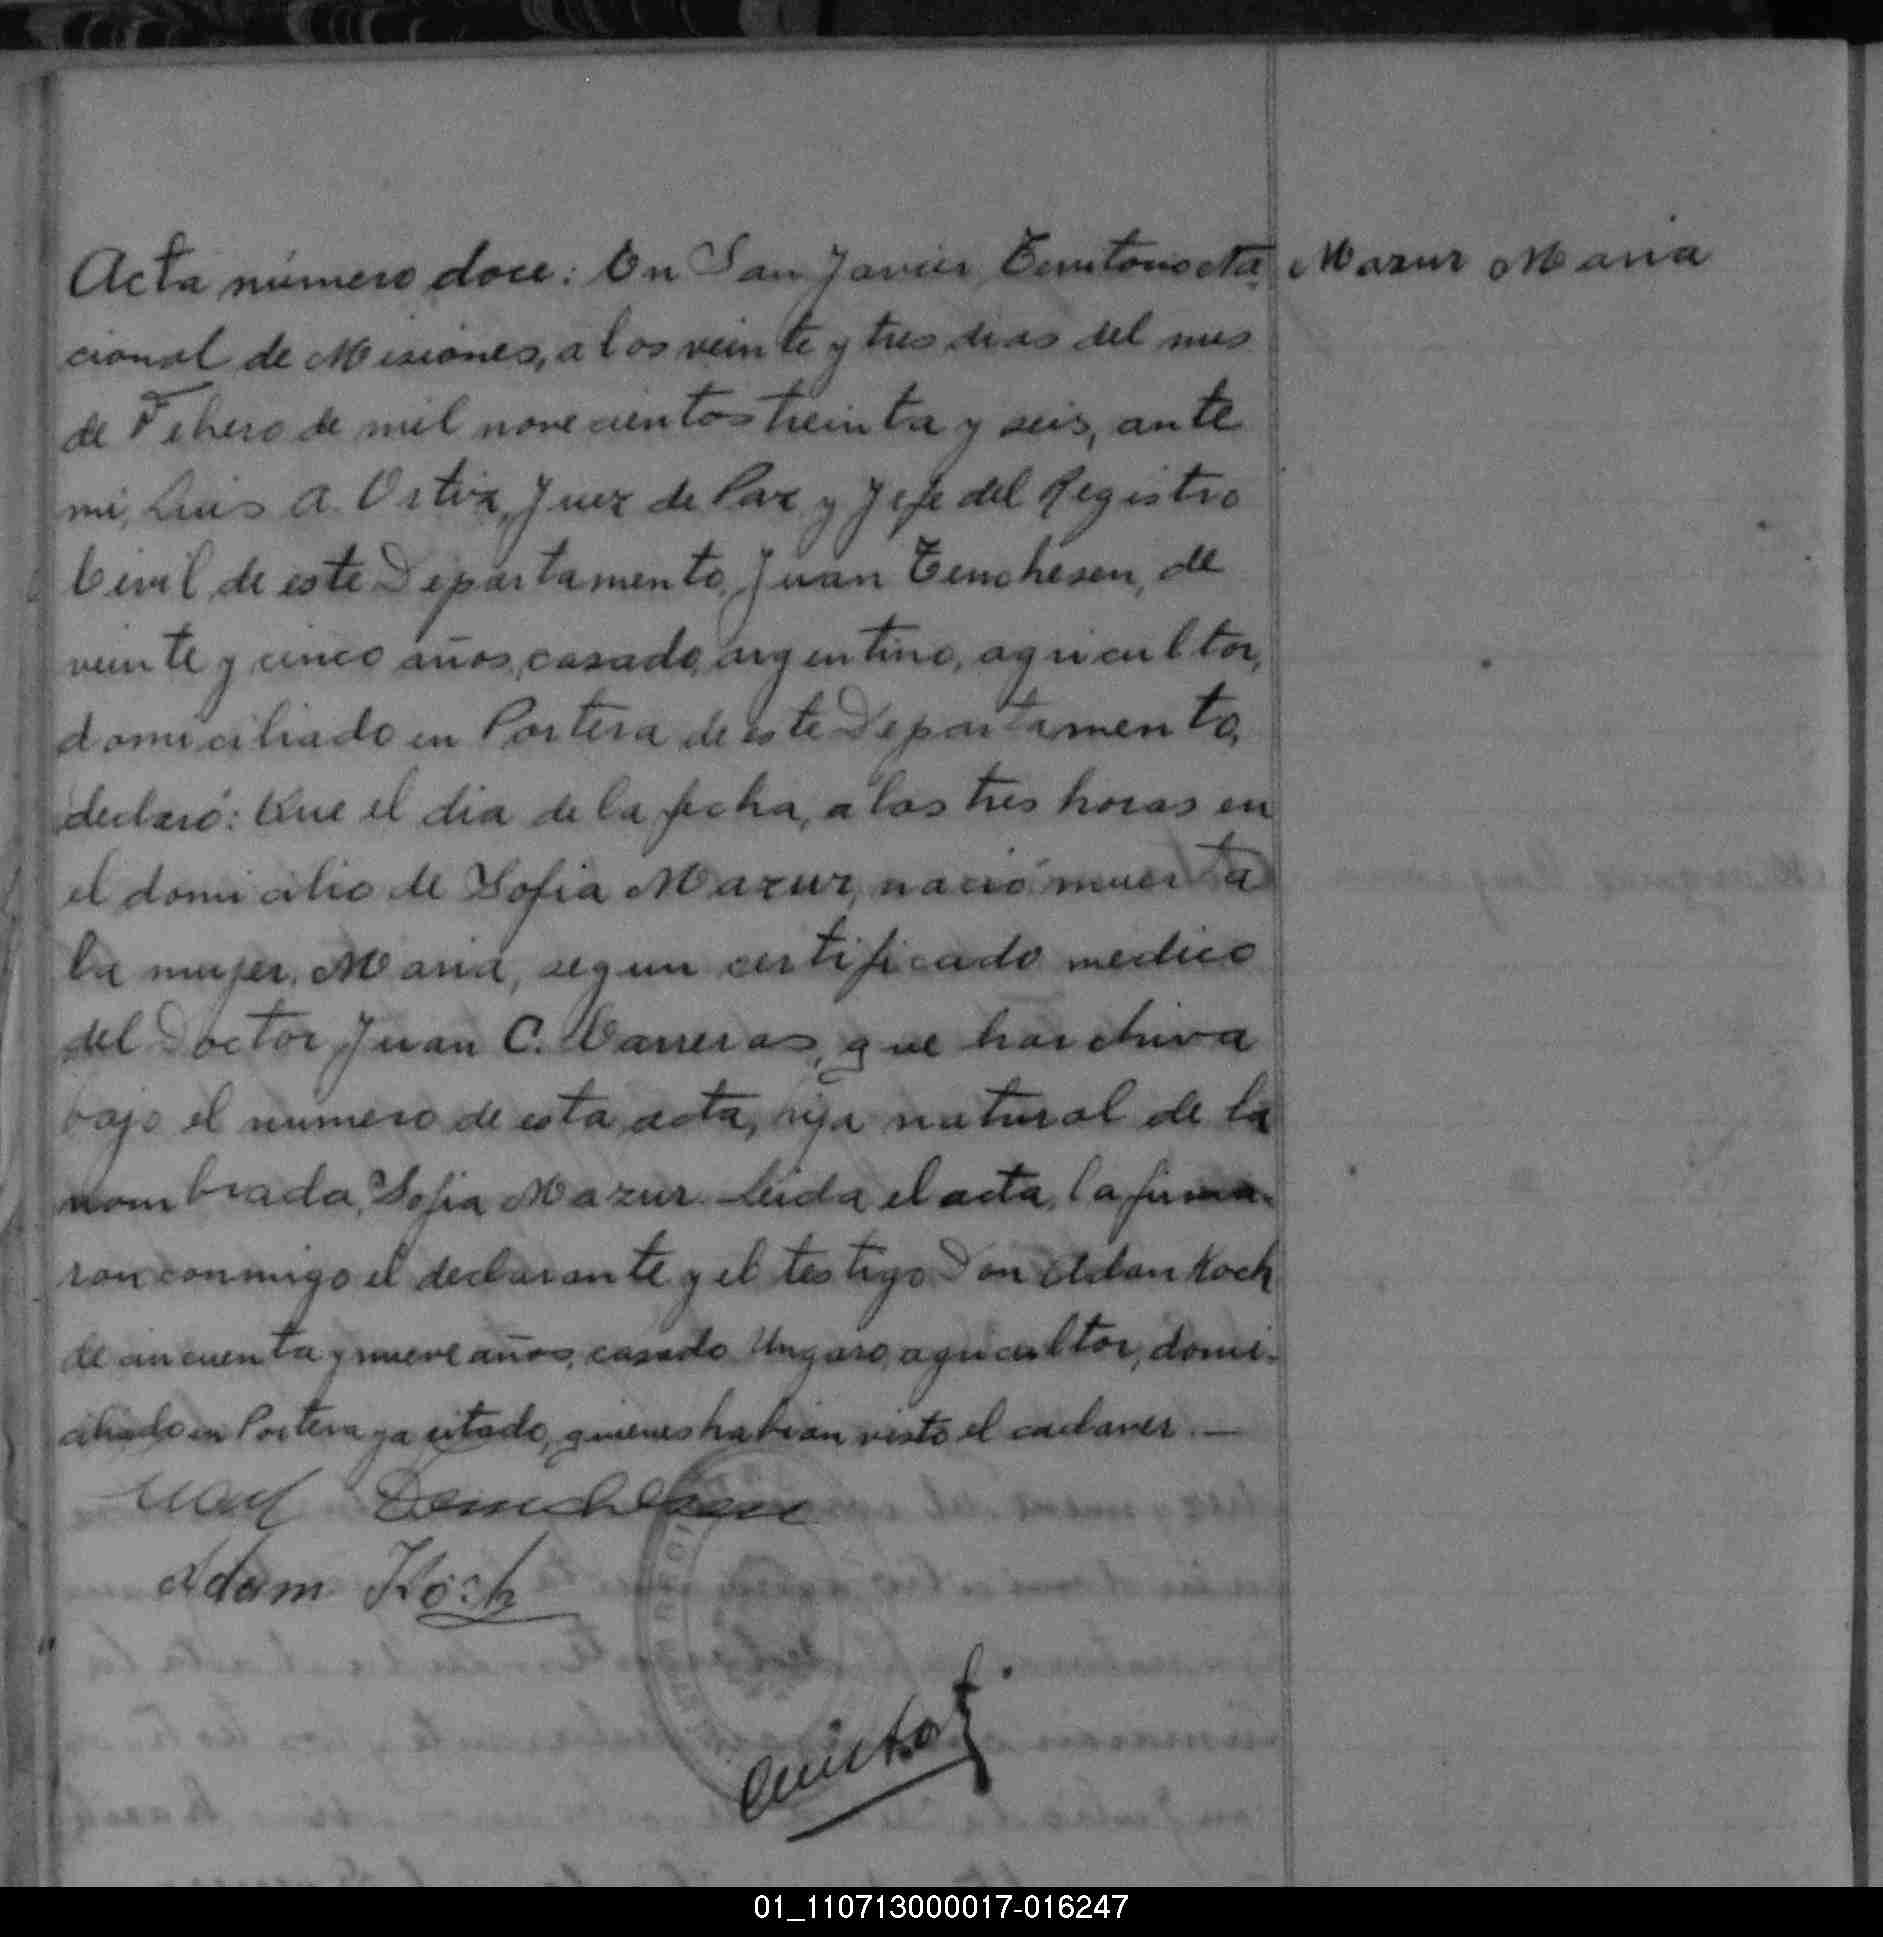 Acta número doce: En San Javier Territorio Na- Mazur Maria
cional de Misiones, a los veinte y tres dias del mes
de Febrero de mil novecientos treinta y seis, ante
mi, Luis A. Ortiz, Juez de Paz y Jefe del Registro
Civil de este Departamento, Juan Tenchesen, de
veinte y cinco años, casado, argentino, agricultor,
domiciliado en Portera de este Departamento,
declaró: Que el dia de la fecha, a las tres horas en
el domicilio de Sofia Mazur, nació muerta
la mujer, Maria, segun certificado medico
del Doctor Juan C. Carreras, que harchiva
bajo el numero de esta acta, hija natural de la
nombrada, Sofia Mazur. Leida el acta, la firma-
ron conmigo el declarante y el testigo Don Adan Koch
de cincuenta y nueve años, casado Ungaro, agricultor, domi-
ciliado en Portera ya citado, quienes habian visto el cadaver. —
Adam Koch
01_110713000017-016247